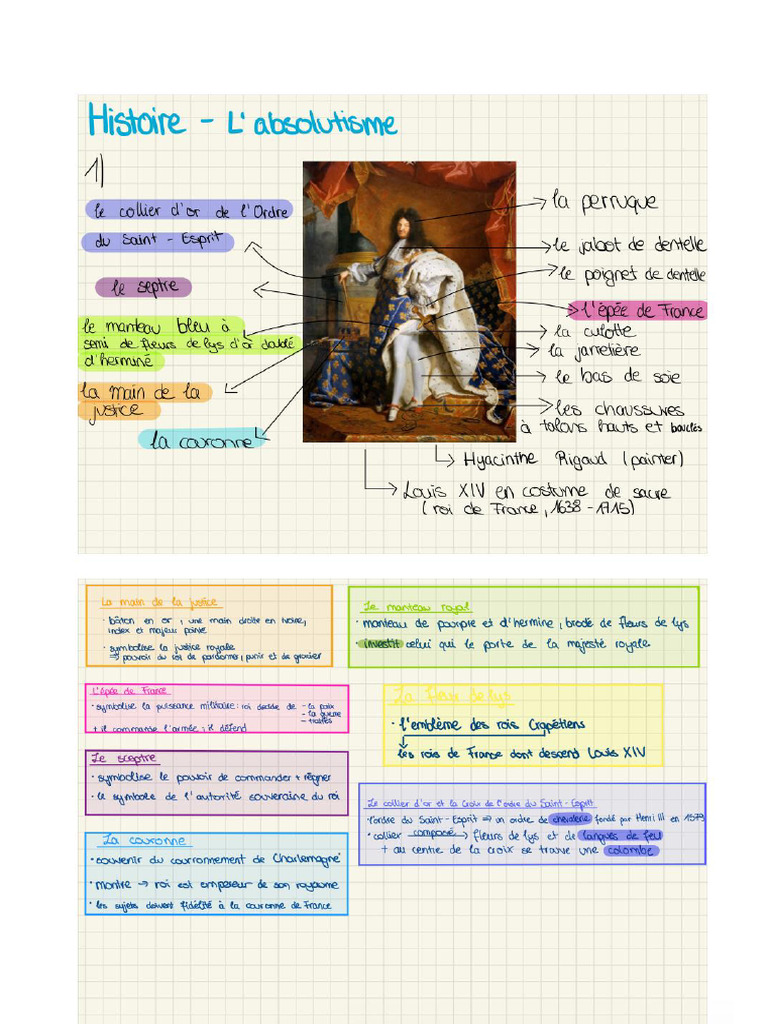 Histoire - L'absolutisme
1)
le collier d'or de l'Ordre
du Saint-Esprit
le septre
le manteau bleu à
semi de fleurs de lys d'or doublé
d'herminé
la main de la
justice
la couronne
la perruque
le jabot de dentelle
le poignet de dentelle
l'épée de France
la culotte
la jarretière
le bas de soie
les chaussures
à talons hauts et bouclés
Hyacinthe Rigaud (painter)
Louis XIV en costume de sacre
(roi de France, 1638-1715)
La main de la justice
• bâton en or, une main droite en ivoire,
index et majeur pointé
• symbolise la justice royale
⇒ pouvoir du roi de pardonner, punir et de gracier
Le manteau royal
• manteau de pourpre et d'hermine, brodé de fleurs de lys
• investit celui qui le porte de la majesté royale.
L'épée de France
• symbolise la puissance militaire: roi decide de - la paix
- la guerre
- traités
+ il commande l'armée; il défend
La fleur de lys
• l'emblème des rois Crapétiens
les rois de France dont descend Louis XIV
Le sceptre
• symbolise le pouvoir de commander + régner
• le symbole de l'autorité souveraine du roi
Le collier d'or et la Croix de l'ordre du Saint-Esprit
• l'ordre du Saint-Esprit ⇒ un ordre de chevalerie fondé par Henri III en 1579
• collier composé → fleurs de lys et de langues de feu
+ au centre de la croix se trouve une colombe
La couronne
• souvenir du couronnement de Charlemagne
• montre → roi est empereur de son royaume
• les sujets doivent fidélité à la couronne de France